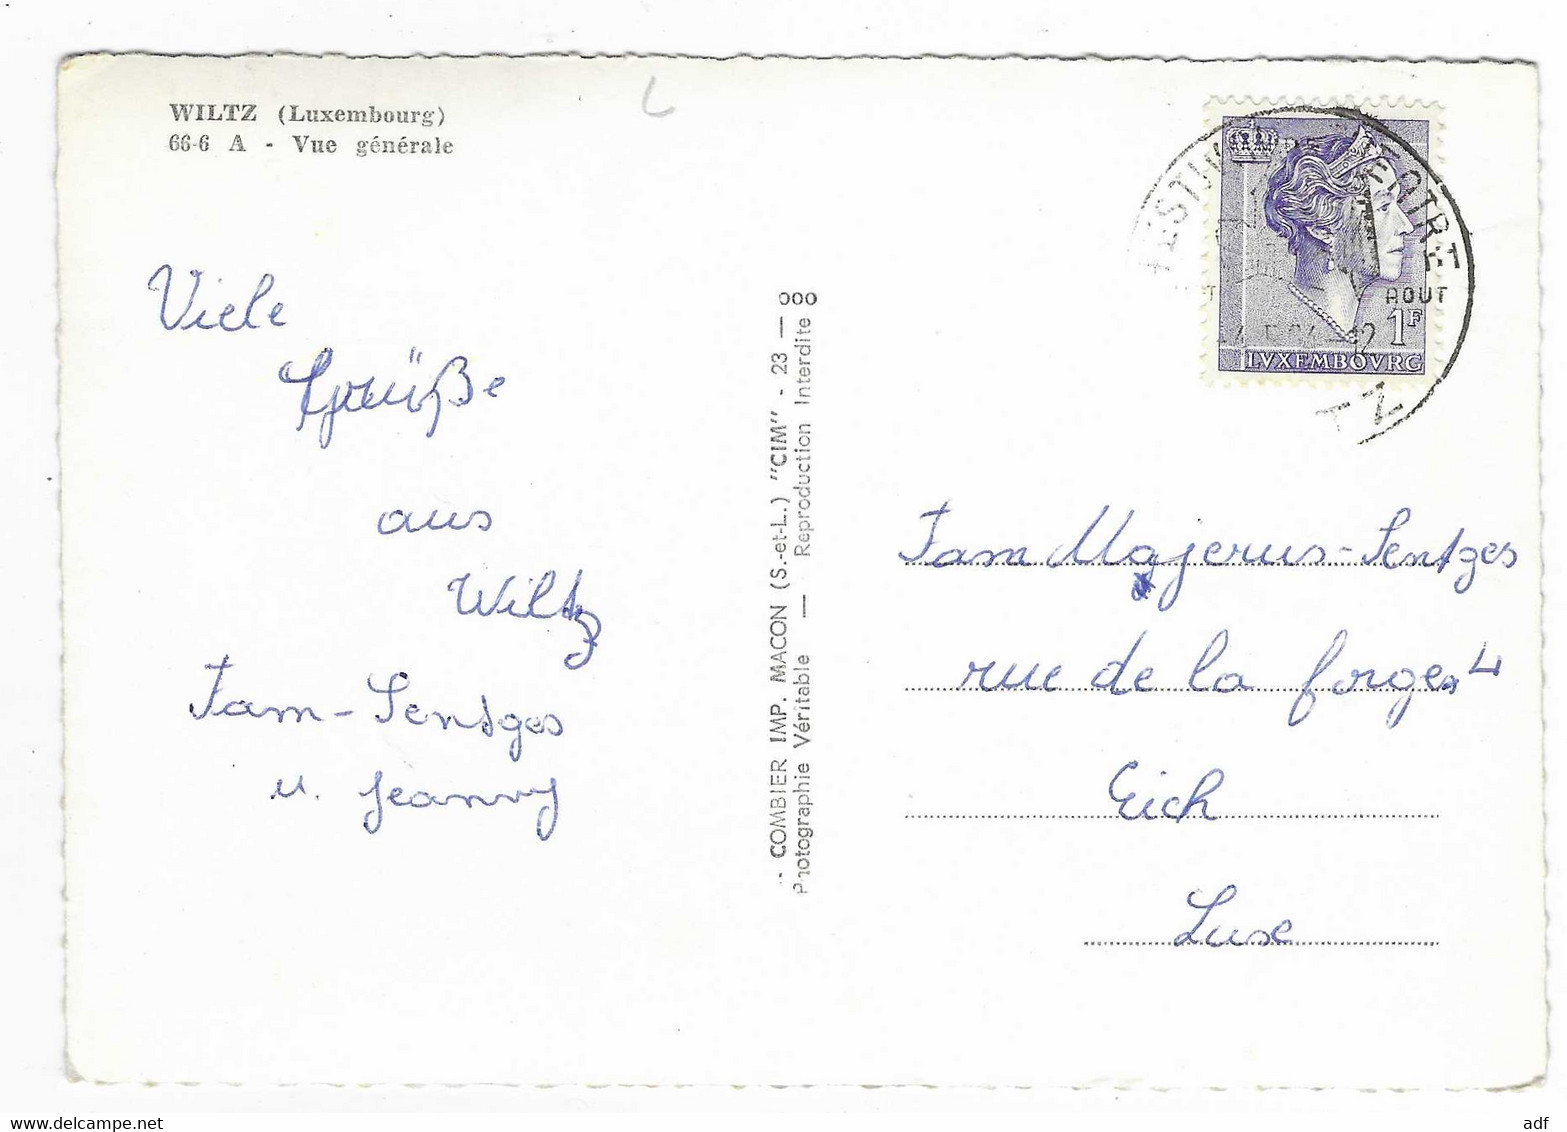 WILTZ (Luxembourg)
66-6 A - Vue générale
Viele
Grüße
aus
Wiltz
Fam-Sentges
u. Jeanny
COMBIER IMP. MACON (S.-et-L.) "CIM" - 23 — 000
Photographie Véritable — Reproduction Interdite
AOUT
1F
LVXEMBOVRG
TZ
Fam Majerus-Sentges
rue de la forge 4
Eich
Luxe
adf